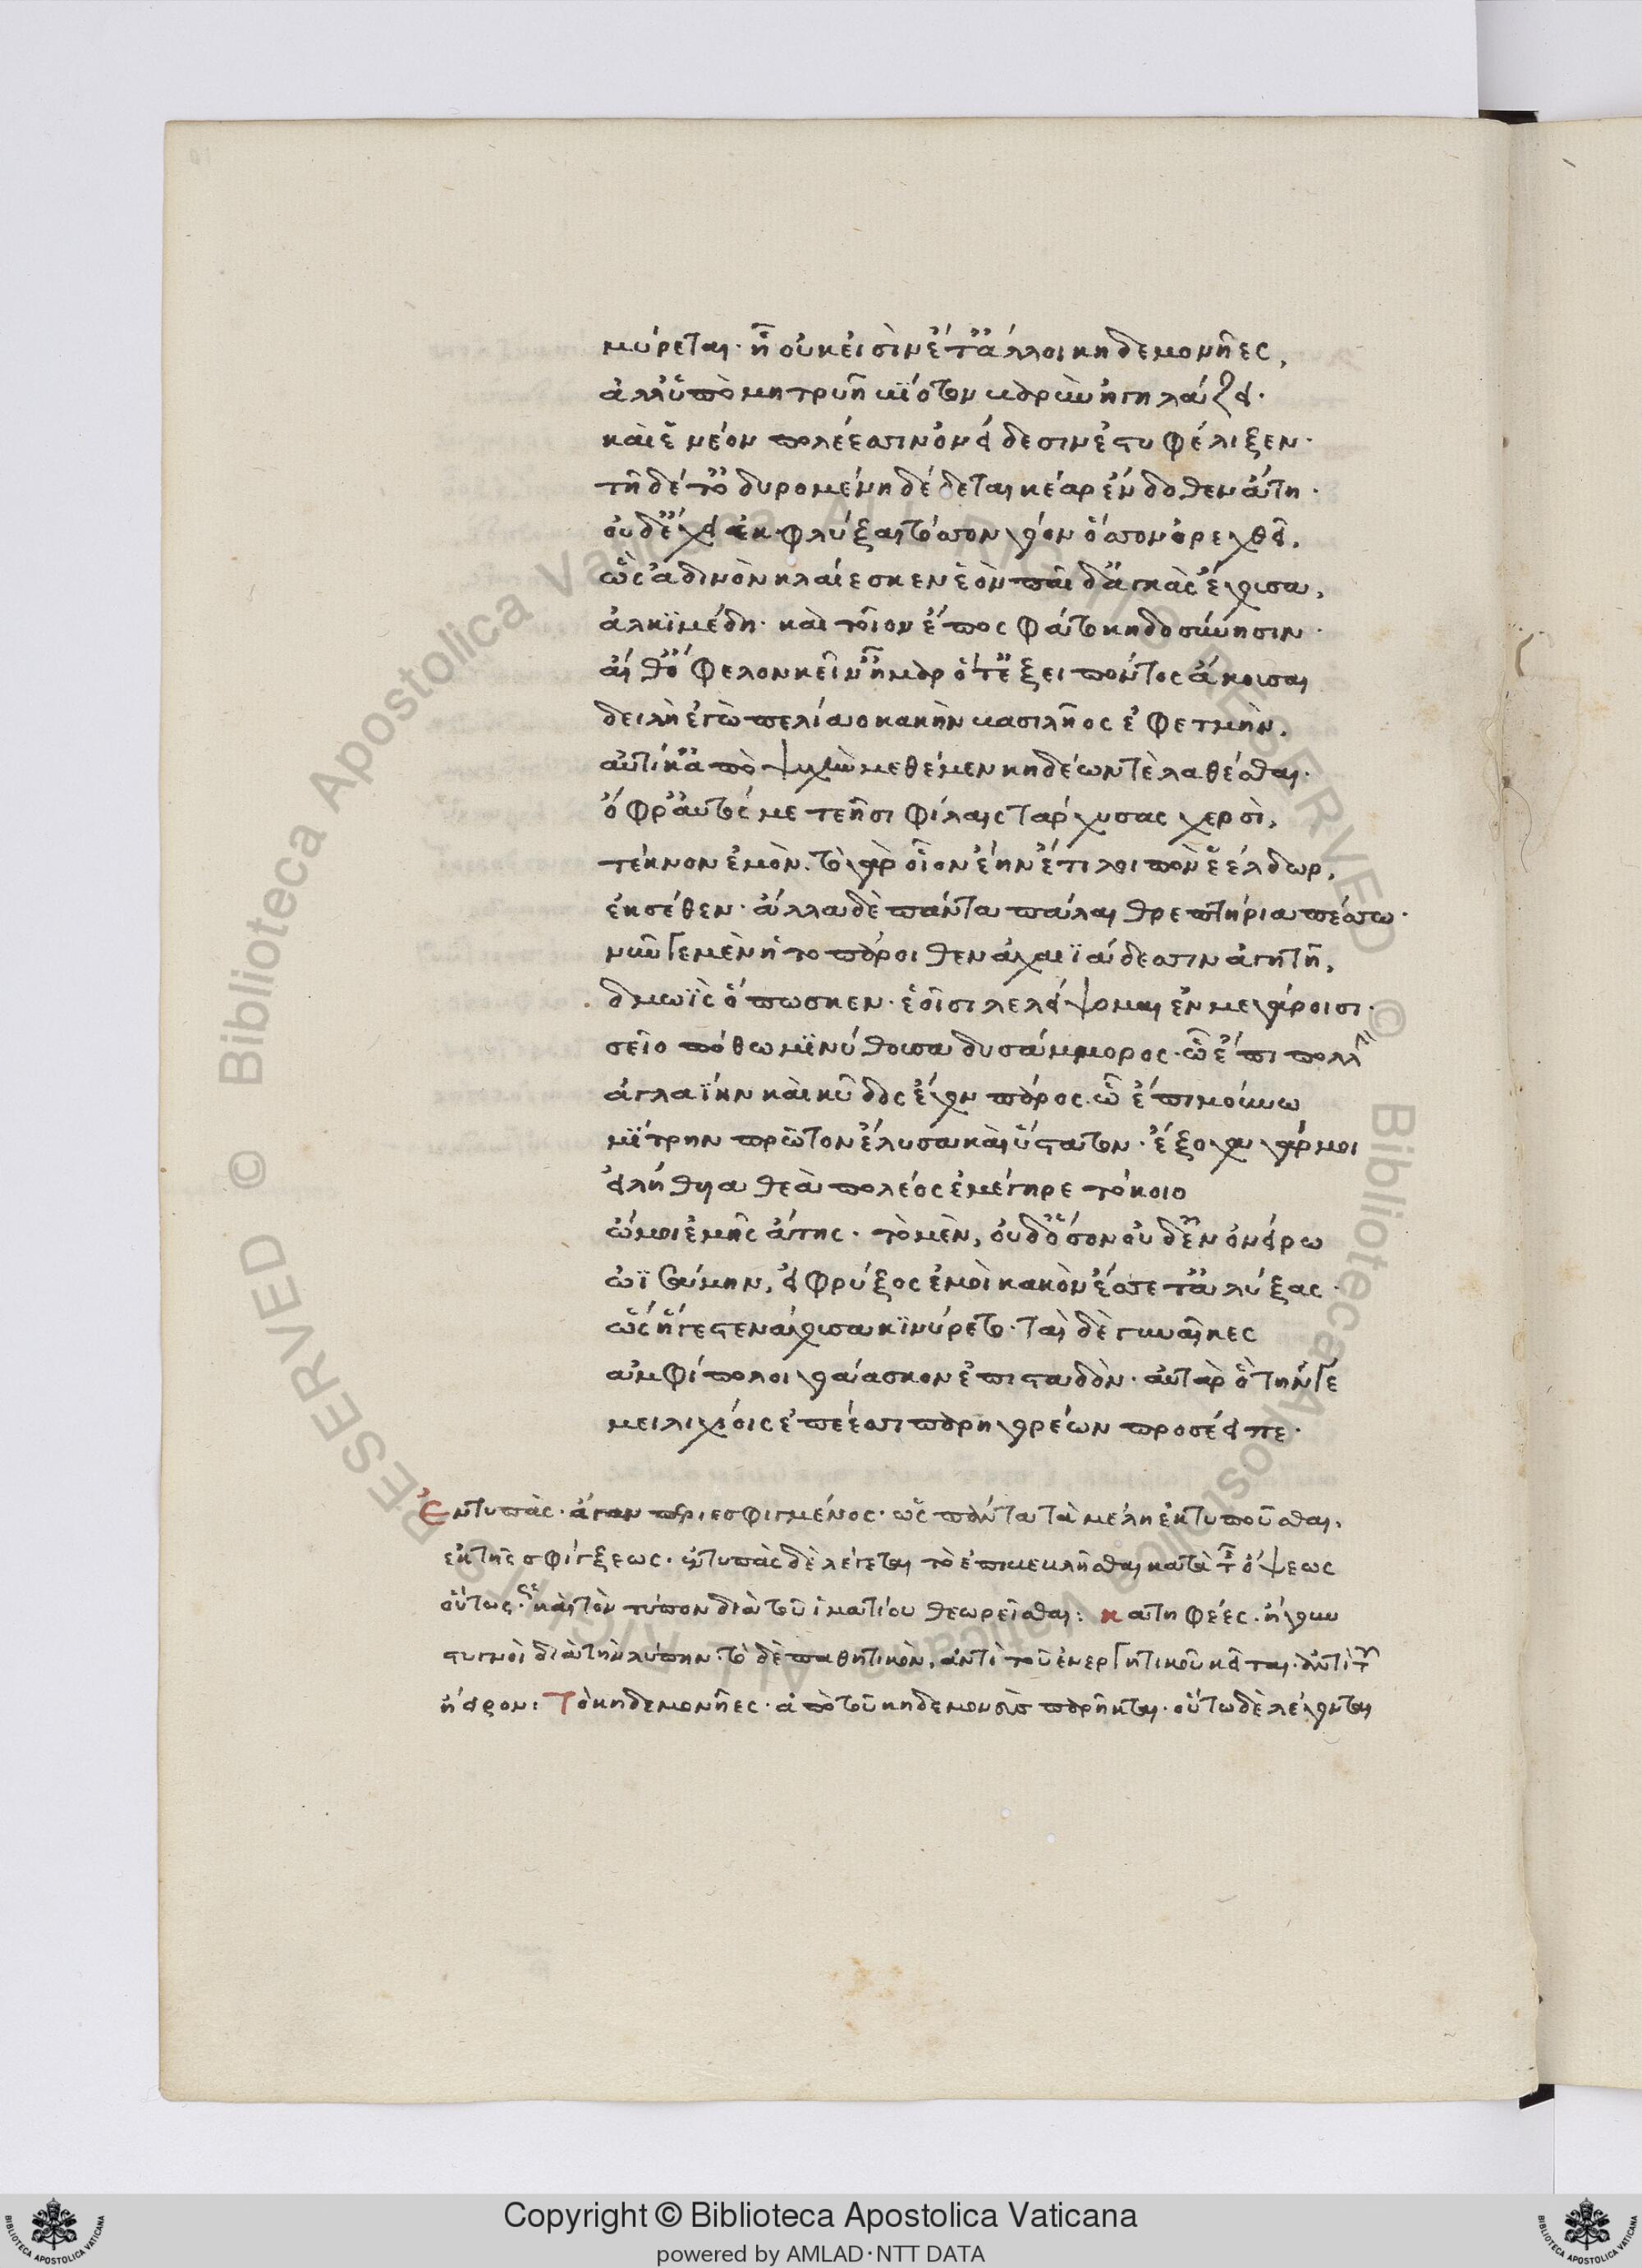 μύρεται· ᾗ οὐκ εἰσὶν ἔτ' ἄλλοι κηδεμονῆες,
ἀλλ' ὑπὸ μητρυιῇ βίοτον βαρὺν ἡγηλάζει·
καί ἑ νέον πολέεσσιν ὀνείδεσιν ἐστυφέλιξεν·
τῇ δέ τ' ὀδυρομένῃ δέδεται κέαρ ἔνδοθεν ἄτῃ·
οὐδ' ἔχει ἐκφλύξαι τόσσον γόον ὅσσον ὀρεχθεῖ,
ὣς ἀδινὸν κλαίεσκεν ἑὸν παῖδ' ἀγκὰς ἔχουσα,
ἀλκιμέδη· καὶ τοῖον ἔπος φάτο κηδοσύνησιν·
αἴθ' ὄφελον κεῖν' ἦμαρ ὅτ' ἐξειπόντος ἄκουσα
δειλὴ ἐγὼ πελίαο κακὴν βασιλῆος ἐφετμὴν,
αὐτίκ' ἀπὸ ψυχὴν μεθέμεν κηδέων τὲ λαθέσθαι·
ὄφρ' αὐτός με τεῇσι φίλαις ταρχύσας χερσὶ,
τέκνον ἐμὸν. τὸ γὰρ οἶον ἔην ἔτι λοιπὸν ἐέλδωρ,
ἐκ σέθεν· ἄλλα δὲ πάντα πάλαι θρεπτήρια πέσσω·
νῦν γε μὲν ἡ τοπάροιθεν ἀχαιϊάδεσσιν ἀγητὴ,
δμωῒς ὅπως κεν ἑοῖσι λελείψομαι ἐν μεγάροισι·
σεῖο πόθω μινύθουσα δυσάμμορος· ᾧ ἔπι πολλὴν
ἀγλαΐην καὶ κῦδος ἔχον πάρος. ᾧ ἔπι μούνω
μίτρην πρῶτον ἔλυσα καὶ ὕστατον· ἔξοχα γάρ μοι
εἰλήθυια θεὰ πολέος ἐμέγηρε τόκοιο
ὤ μοι ἐμῆς ἄτης· τὸ μὲν, οὐδ' ὅσον οὐδ' ἐν ὀνείρω
ὠϊσάμην, εἰ φρύξος ἐμοὶ κακὸν ἔσσετ' ἀλύξας·
ὣς ἥγε στενάχουσα κινύρετο· ταὶ δὲ γυναῖκες
ἀμφίπολοι γοάασκον ἐπισταδὸν· αὐτὰρ ὃ τήν γε
μειλιχίοις ἐπέεσσι παρηγορέων προσέειπε·
Ἐντυπὰς· ἄγαν περιεσφιγμένος· ὡς πάντα τὰ μέλη ἐκτυποῦσθαι,
ἐκ τῆς σφίγξεως. ἐντυπὰς δὲ λέγεται τὸ ἐπικεκλῆσθαι κατὰ τῆς ὄψεως
οὕτως. ὡς καὶ τὸν τύπον διὰ τοῦ ἱματίου θεωρεῖσθαι: κατηφέες. ἤγουν
στυγνοὶ διὰ τὴν λύπην. τὸ δὲ παθητικὸν, ἀντὶ τοῦ ἐνεργητικοῦ κεῖται. ἀντὶ τοῦ
ἤειρον: Τὸ κηδεμονῆες· ἀπὸ τοῦ κηδεμονεὺς παρῆκται. οὕτω δὲ λέγονται